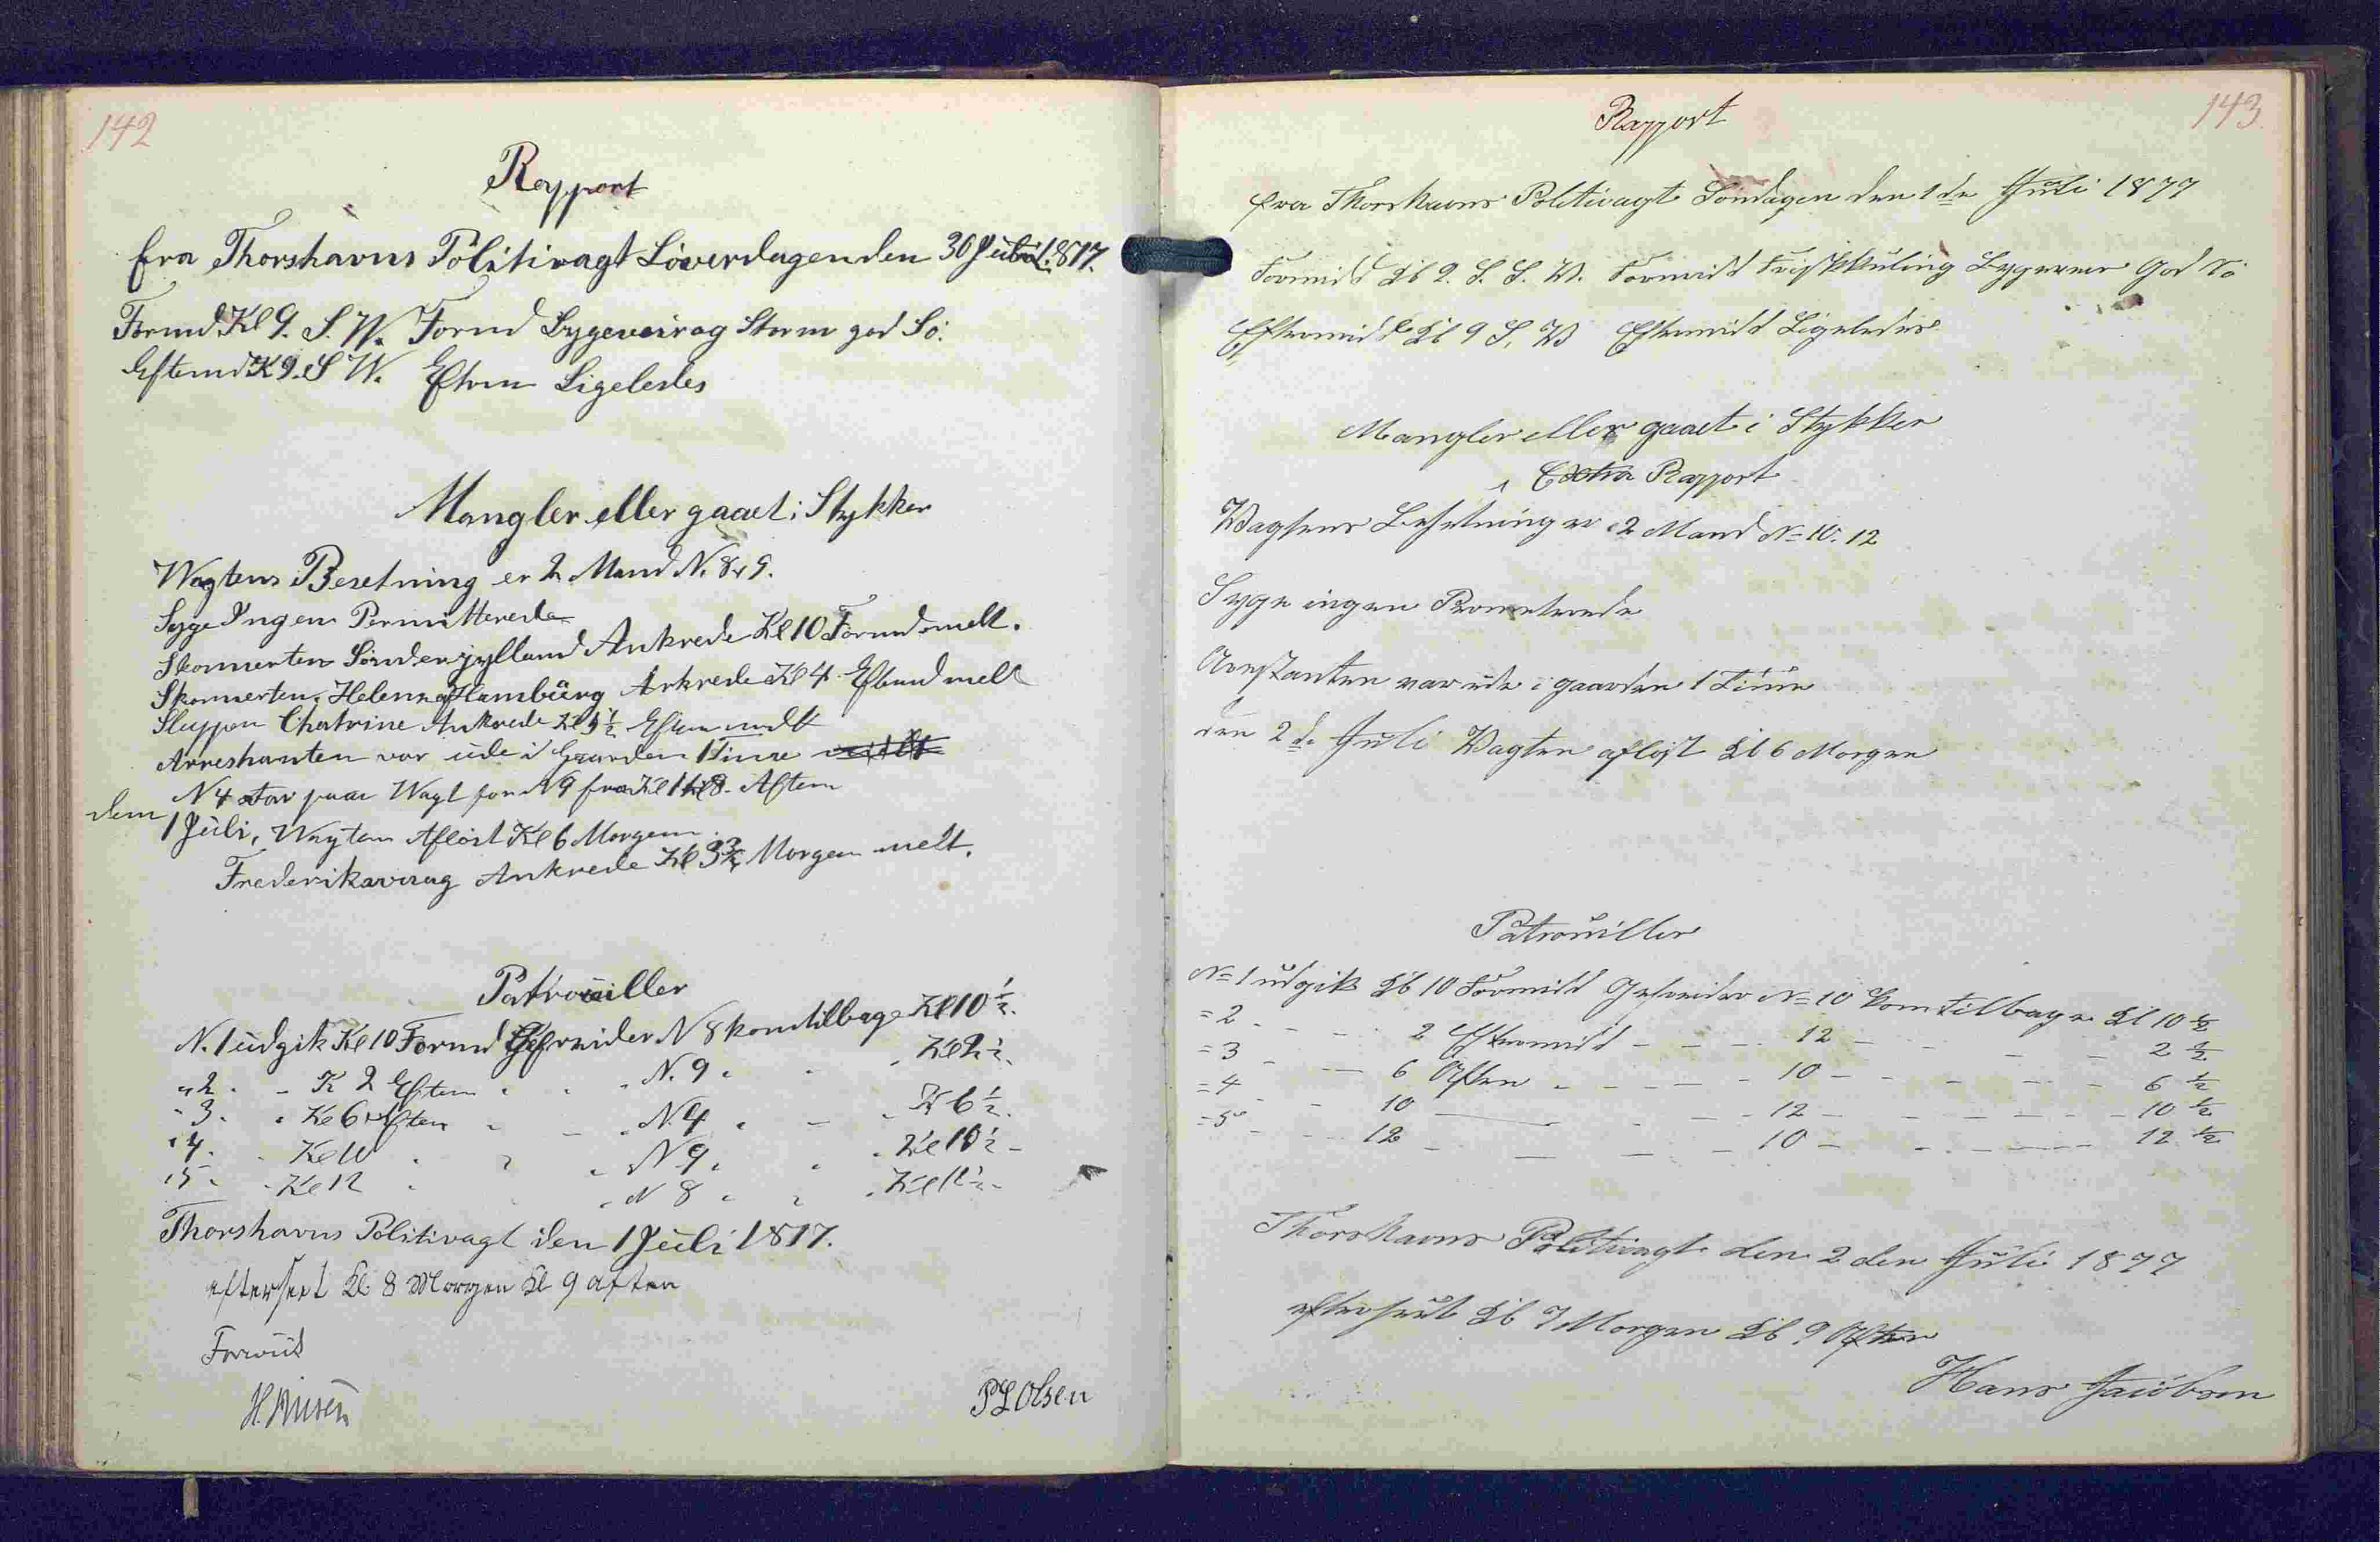 142
Rapport
fra Thorshavns Politivagt Löverdagen den 30 1877.
Formd Kl 9. S. W. Formd Bygeveir og Storm god Sö.
Eftemd Kl 9. S W. Eftem Ligeledes
Mangler eller gaaet i Stykker
Wagtens Besetning er 2 Mand N. 8 & 9.
Syge Ingen Permitterede
Skonnerten Sönderjylland Ankrede Kl 10 Formd melt.
Skonnerten Helena af Hamburg Ankrede Kl 4 Eftemd melt
Sluppen Chatrine Ankrede Kl Eftem melt
Arrestanten var ude i Gaarden 1 Time
N 4 star paa Wagt for N 9 fra Kl 1 til 8 Aftem
dem 1 Juli, Wagten Aflöst Kl 6 Morgem.
Frederiksvaag Ankrede Kl 3¾ Morgen melt.
Patrouiller
N. 1 udgik Kl 10 Formd Gefreider N 8 kom tilbage Kl 10 ½.
" 2 - - K 2 Eftem " " N. 9 " - Kl 2 ½.
- 3. " Kl 6 Aften " - N. 4 " - Kl 6 ½.
" 4. - Kl 10 " " N 9. " - Kl 10 ½ -
" 5 " - Kl 12 " " N 8 " " Kl 12 ½ -
Thorshavns Politivagt den 1 Juli 1877.
efterseet Kl. 8 Morgen Kl 9 aften
P L Olsen
143
Rapport
fra Thorshavns Politivagt Söndagen den 1 de Juli 1877
Formidd Kl 9. S. S. W. Formidd Friskkuling Bygeveir God Sö
Eftermidd Kl 9 S, W Eftermidd Ligeledes
Mangler eller gaaet i Stykker
Extra Rapport
Wagtens Besetning er 2 Mand No 10. 12
Syge ingen
Arestanten var ude i gaarden 1 Time
den 2 d. Juli Wagten aflöst Kl 6 Morgen
Patrouiller
No 1 udgik Kl 10 Formidd Gefreider No 10 kom tilbage Kl 10 ½
= 2 - - - 2 Eftermidd - - - 12 - - - 2 ½
= 3 - - 6 Aften - - - 10 - - - 6 ½
= 4 - - 10 - - - 12 - - - 10 ½
= 5 - - 12 - - - 10 - - - 12 ½
Thorshavns Politivagt den 2 den Juli 1877
efterseet Kl 7 Morgen Kl 9 Aften
Hans Jacobsen